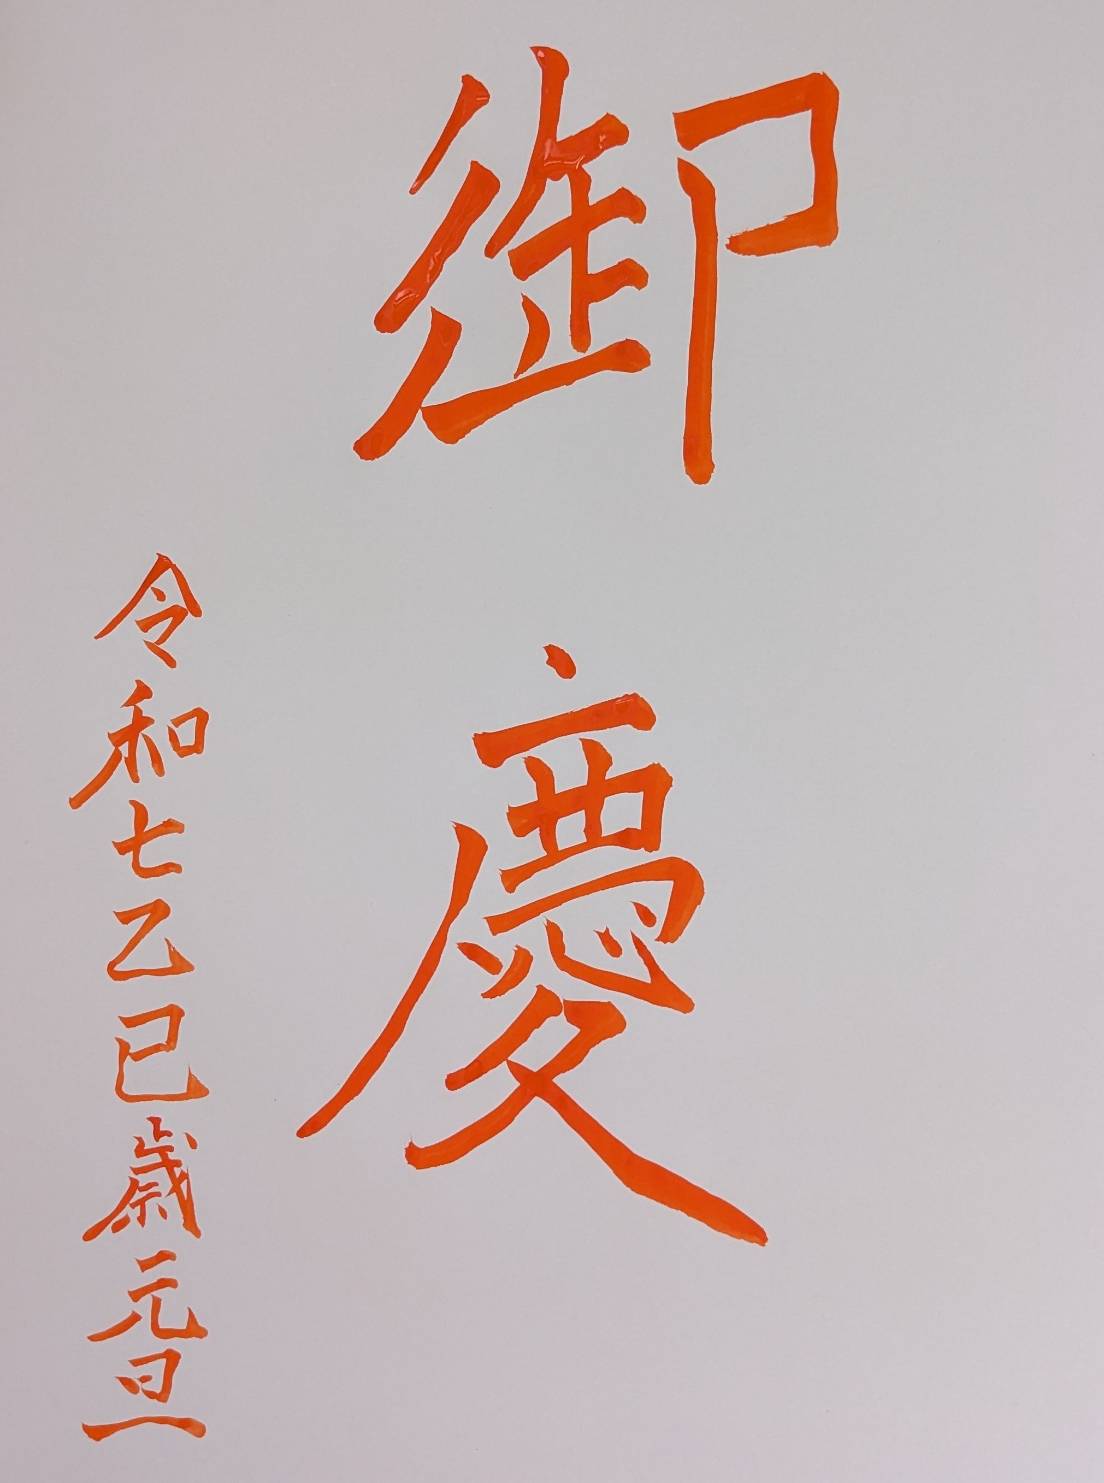 御慶
令和七乙巳歳元旦